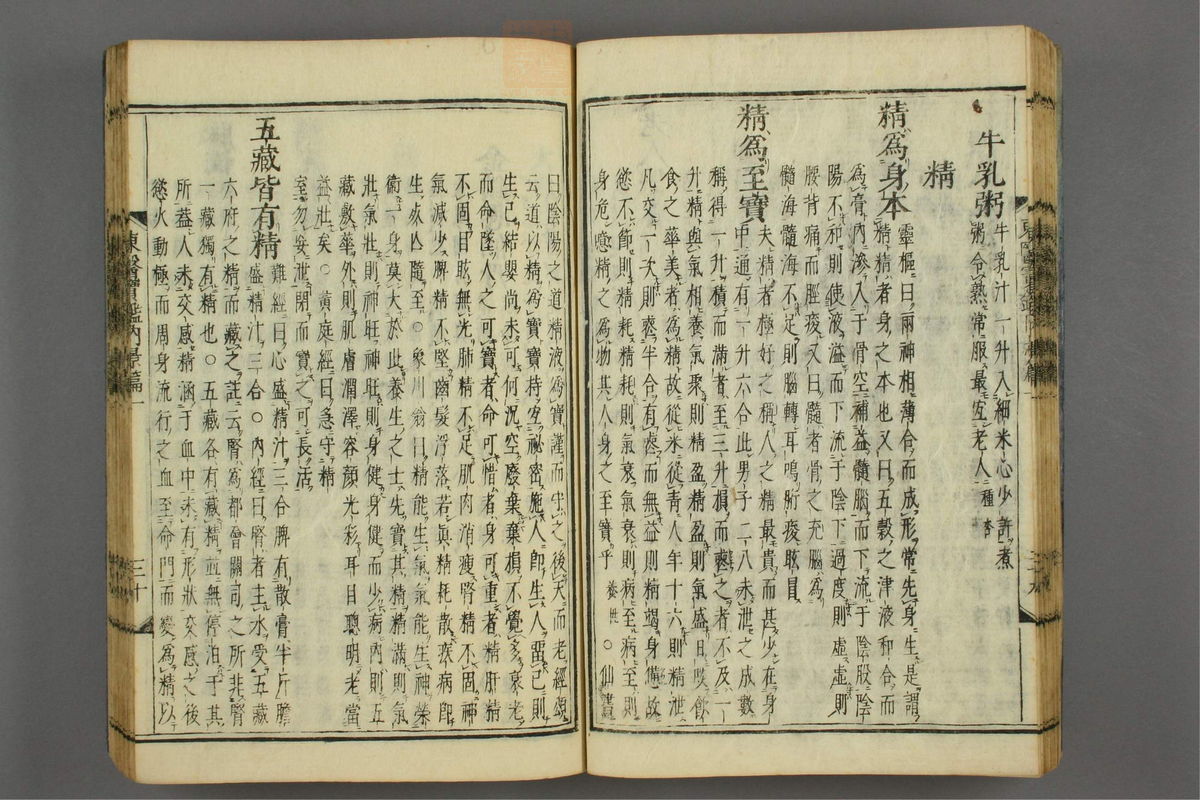 牛乳粥 牛乳汁一升入細米心少許煮
粥令熟常服最宜老人種杏
精
精爲身本 靈樞曰兩神相薄合而成形常先身生是謂
精精者身之本也又曰五穀之津液和合而
爲膏內滲入于骨空補益髓腦而下流于陰股陰
陽不和則使液溢而下流于陰下過度則虛虛則
腰背痛而脛痠又曰髓者骨之充腦爲
髓海髓海不足則腦轉耳鳴䯒痠眩冒
精爲至寶 夫精者極好之稱人之精最貴而甚少在身
中通有一升六合此男子二八未泄之成數
稱得一升積而滿者至三升損而喪之者不及一
升精與氣相養氣聚則精盈精盈則氣盛日啖飮
食之華美者爲精故從米從靑人年十六則精泄
凡交一次則喪半合有喪而無益則精竭身憊故
慾不節則精耗精耗則氣衰氣衰則病至病至則
身危噫精之爲物其人身之至寶乎養性○仙書
曰陰陽之道精液爲寶謹而守之後天而老經頌
云道以精爲寶寶持宜祕密施人卽生人留己則
生己結嬰尙未可何況空廢棄棄損不覺多衰老
而命墜人之可寶者命可惜者身可重者精肝精
不固目眩無光肺精不足肌肉消瘦腎精不固神
氣減少脾精不堅齒髮浮落若眞精耗散疾病卽
生死亾隨至○象川翁曰精能生氣氣能生神榮
衛一身莫大於此養生之士先寶其精精滿則氣
壯氣壯則神旺神旺則身健身健而少病內則五
藏敷華外則肌膚潤澤容顏光彩耳目聰明老當
益壯矣○黃庭經曰急守精
室勿妄泄閉而寶之可長活
五藏皆有精 難經曰心盛精汁三合脾有散膏半斤膽
盛精汁三合○內經曰腎者主水受五藏
六府之精而藏之註云腎爲都會關司之所非腎
一藏獨有精也○五藏各有藏精並無停泊于其
所蓋人未交感精涵于血中未有形狀交感之後
慾火動極而周身流行之血至命門而變爲精以
東醫寶鑑內景篇一
三十